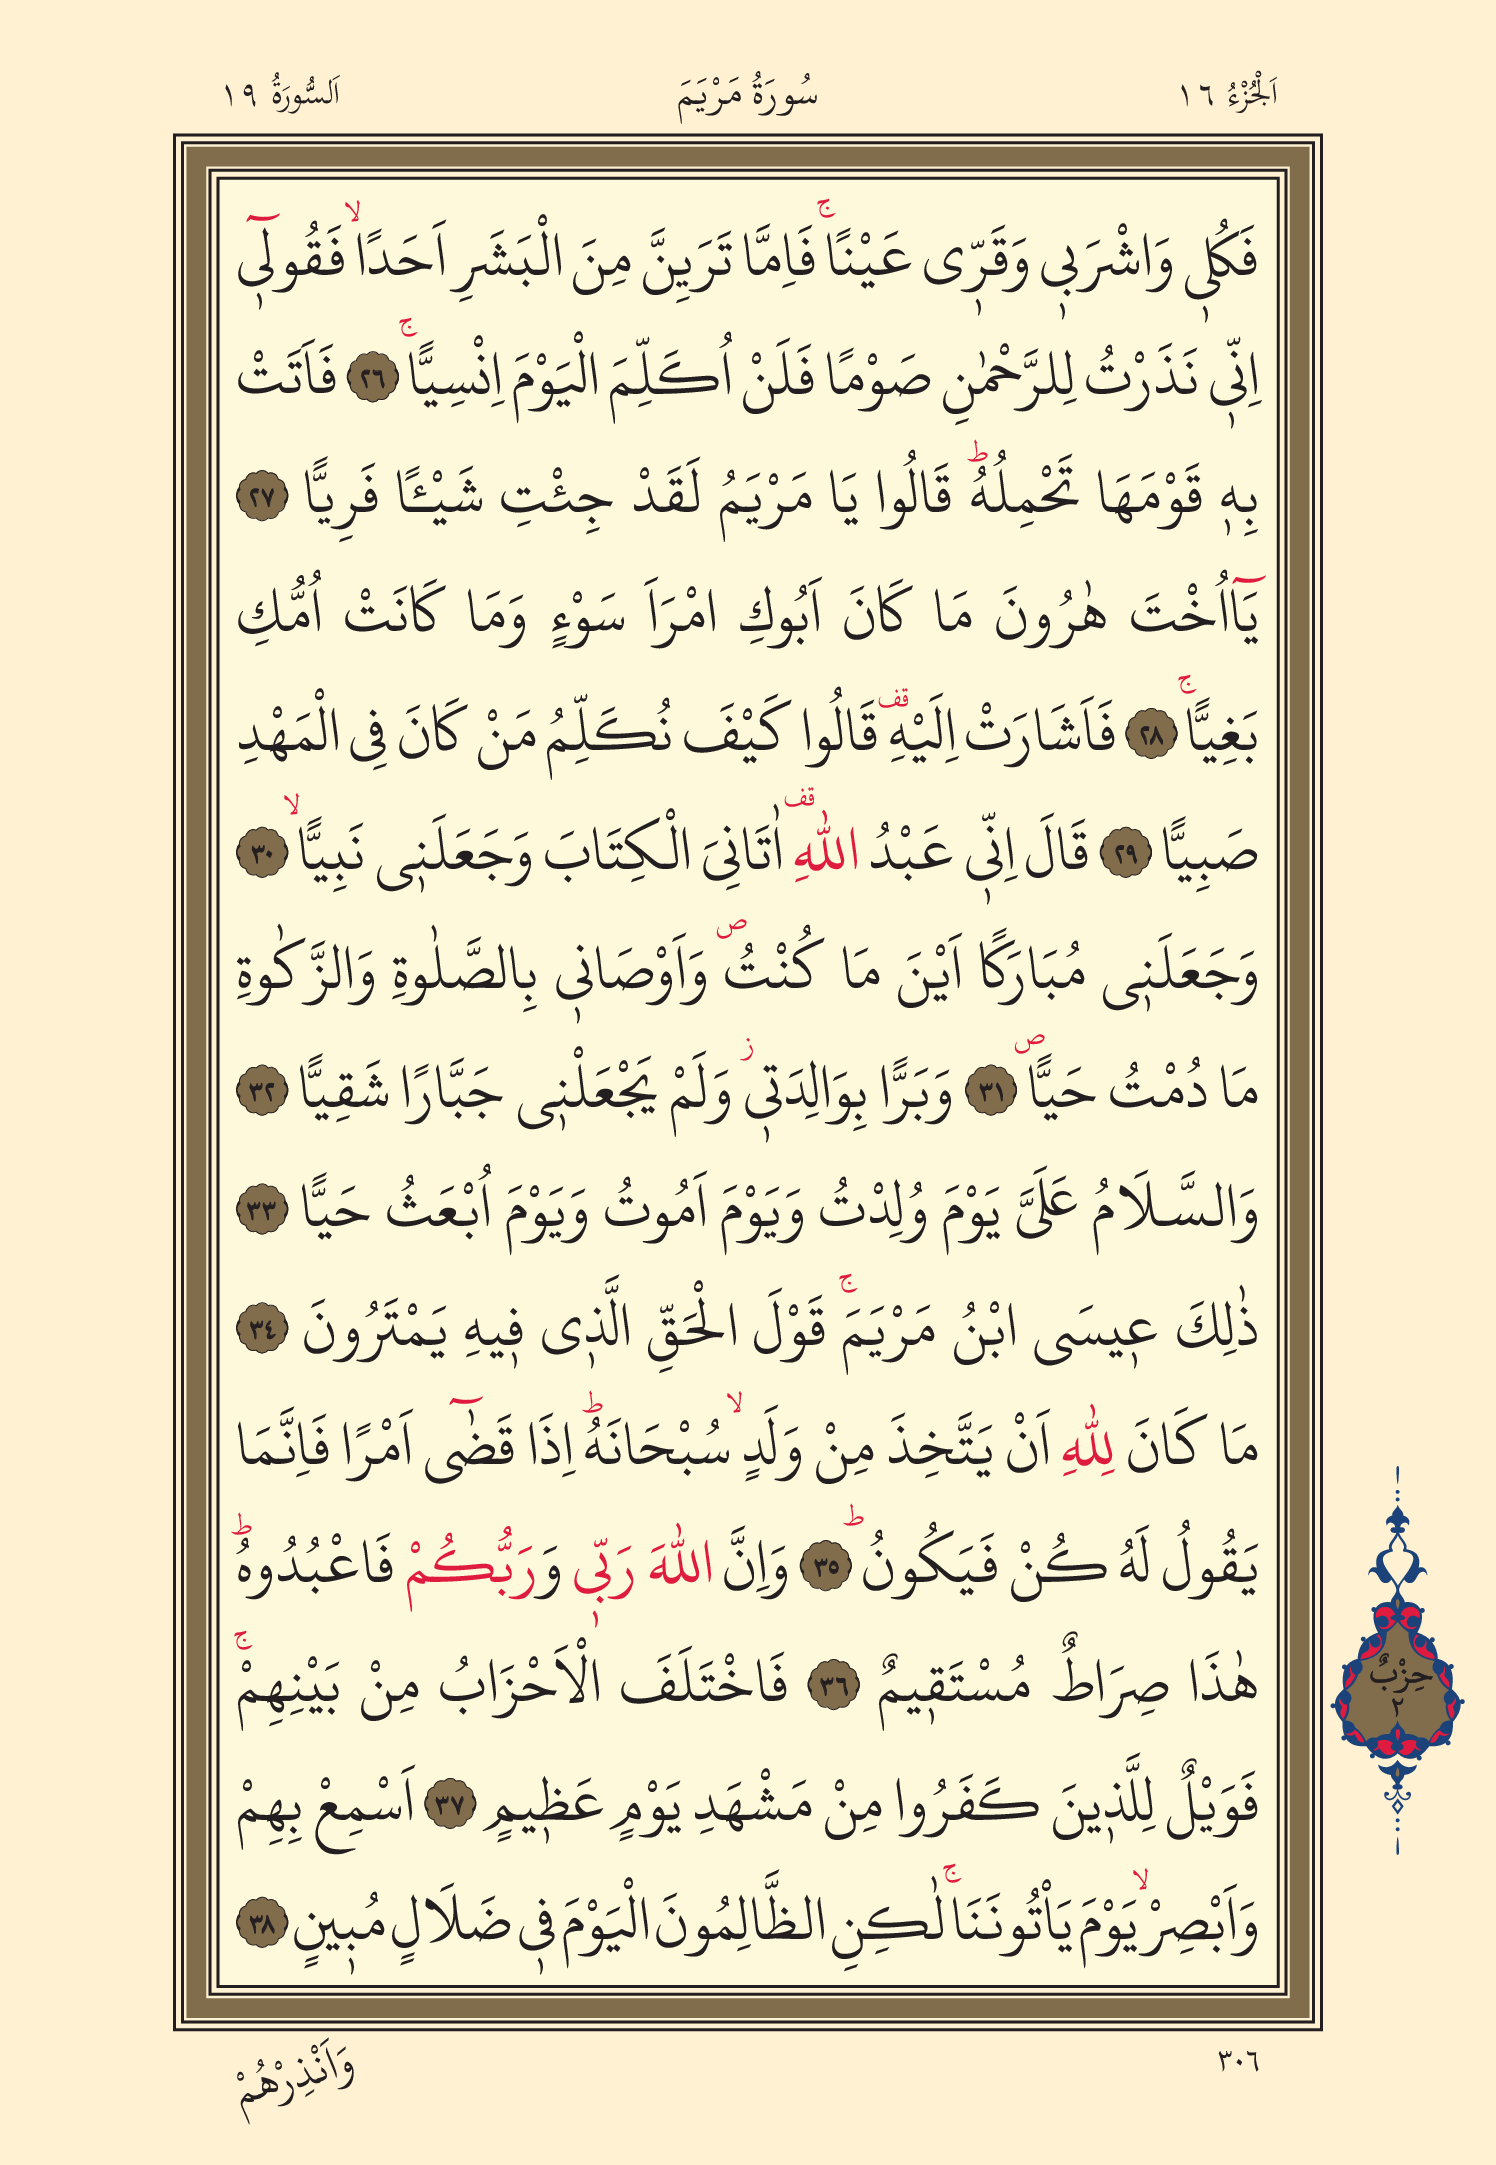 اَلْجُزْءُ ١٦
سُورَةُ مَرْيَمَ
اَلسُّورَةُ ١٩
فَكُلٖي وَاشْرَبٖي وَقَرّٖى عَيْنًاۚ فَاِمَّا تَرَيِنَّ مِنَ الْبَشَرِ اَحَدًاۙ فَقُولٖٓي
اِنّٖي نَذَرْتُ لِلرَّحْمٰنِ صَوْمًا فَلَنْ اُكَلِّمَ الْيَوْمَ اِنْسِيًّاۚ ٢٦ فَاَتَتْ
بِهٖ قَوْمَهَا تَحْمِلُهُۜ قَالُوا يَا مَرْيَمُ لَقَدْ جِئْتِ شَيْـًٔا فَرِيًّا ٢٧
يَٓا اُخْتَ هٰرُونَ مَا كَانَ اَبُوكِ امْرَاَ سَوْءٍ وَمَا كَانَتْ اُمُّكِ
بَغِيًّاۚ ٢٨ فَاَشَارَتْ اِلَيْهِ قف قَالُوا كَيْفَ نُكَلِّمُ مَنْ كَانَ فِى الْمَهْدِ
صَبِيًّا ٢٩ قَالَ اِنّٖي عَبْدُ اللّٰهِ قف اٰتَانِىَ الْكِتَابَ وَجَعَلَنٖى نَبِيًّاۙ ٣٠
وَجَعَلَنٖى مُبَارَكًا اَيْنَ مَا كُنْتُ ص وَاَوْصَانٖي بِالصَّلٰوةِ وَالزَّكٰوةِ
مَا دُمْتُ حَيًّا ص ٣١ وَبَرًّا بِوَالِدَتٖي ز وَلَمْ يَجْعَلْنٖى جَبَّارًا شَقِيًّا ٣٢
وَالسَّلَامُ عَلَىَّ يَوْمَ وُلِدْتُ وَيَوْمَ اَمُوتُ وَيَوْمَ اُبْعَثُ حَيًّا ٣٣
ذٰلِكَ عٖيسَى ابْنُ مَرْيَمَۚ قَوْلَ الْحَقِّ الَّذٖى فٖيهِ يَمْتَرُونَ ٣٤
مَا كَانَ لِلّٰهِ اَنْ يَتَّخِذَ مِنْ وَلَدٍۙ سُبْحَانَهُۜ اِذَا قَضٰٓى اَمْرًا فَاِنَّمَا
يَقُولُ لَهُ كُنْ فَيَكُونُۜ ٣٥ وَاِنَّ اللّٰهَ رَبّٖي وَرَبُّكُمْ فَاعْبُدُوهُۜ
هٰذَا صِرَاطٌ مُسْتَقٖيمٌ ٣٦ فَاخْتَلَفَ الْاَحْزَابُ مِنْ بَيْنِهِمْۚ
فَوَيْلٌ لِلَّذٖينَ كَفَرُوا مِنْ مَشْهَدِ يَوْمٍ عَظٖيمٍ ٣٧ اَسْمِعْ بِهِمْ
وَاَبْصِرْۙ يَوْمَ يَاْتُونَنَاۚ لٰكِنِ الظَّالِمُونَ الْيَوْمَ فٖي ضَلَالٍ مُبٖينٍ ٣٨
حِزْبٌ
٢
٣٠٦
وَاَنْذِرْهُمْ